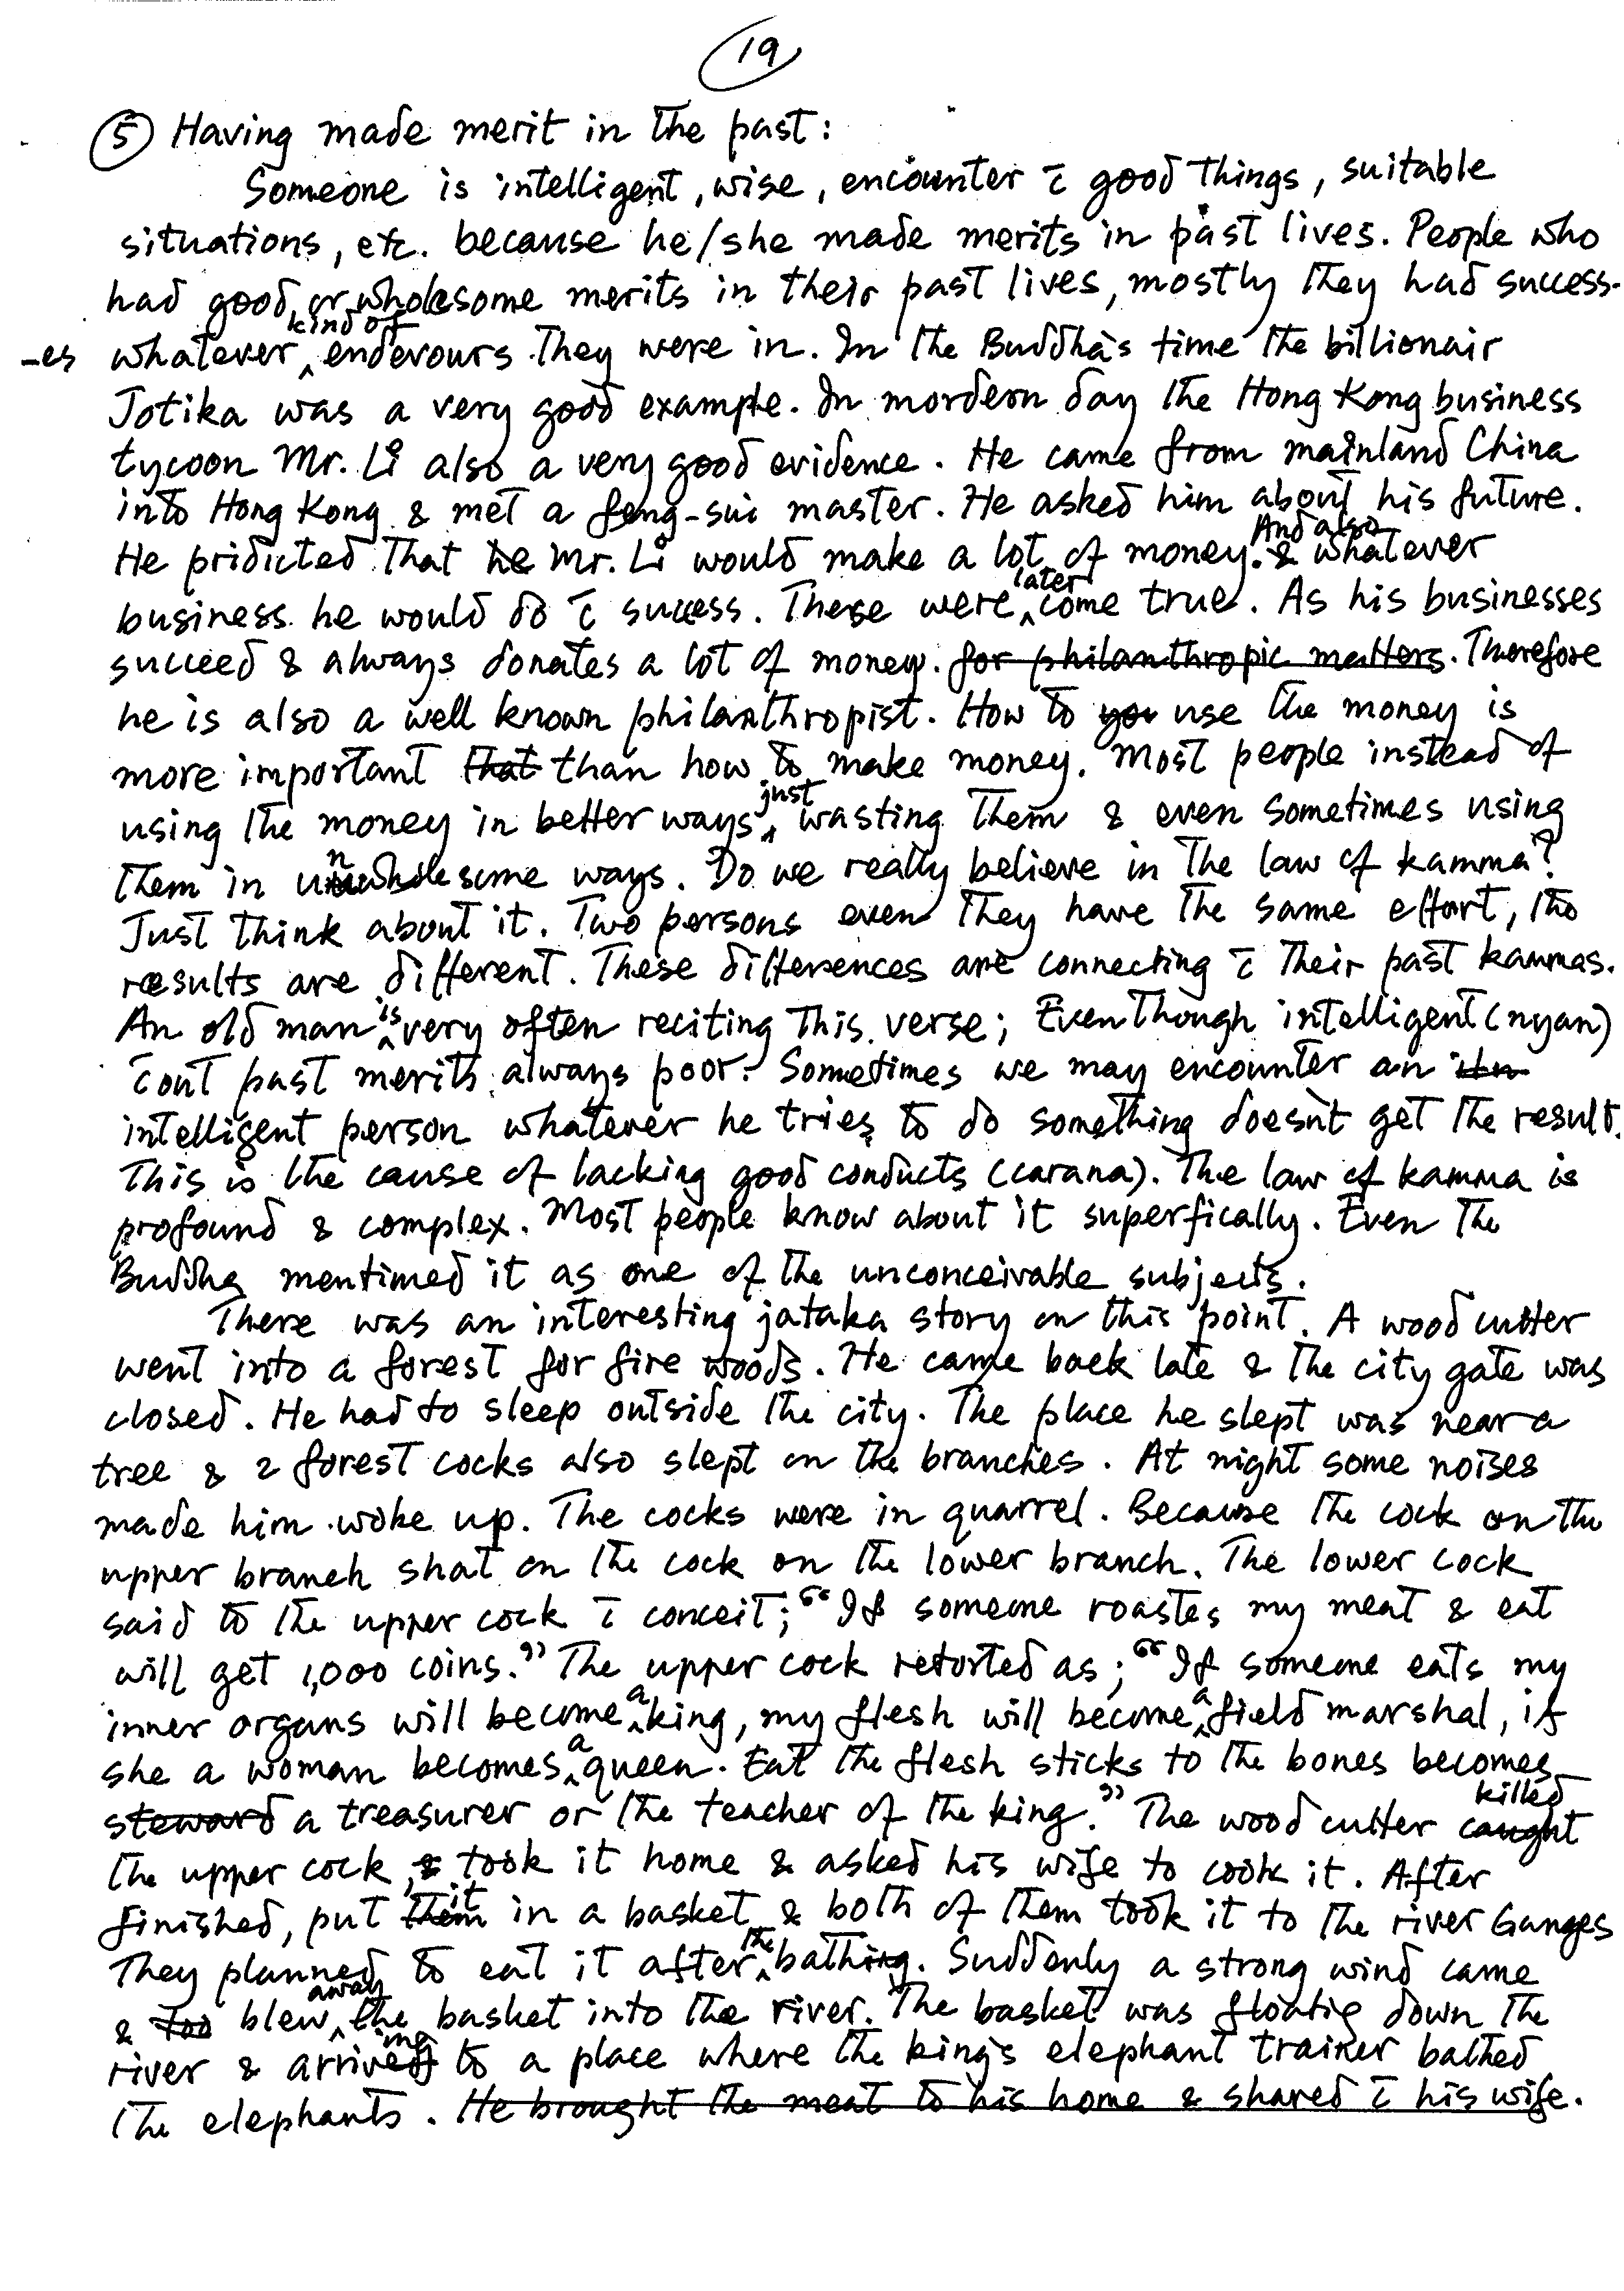 19
⑤ Having made merit in the past:
Someone is intelligent, wise, encounter c̄ good things, suitable
situations, etc. because he/she made merits in past lives. People who
had good or wholesome merits in their past lives, mostly they had success-
-es whatever kind of endevours they were in. In the Buddha's time the billionair
Jotika was a very good example. In mordern day the Hong Kong business
tycoon Mr. Li also a very good evidence. He came from mainland China
into Hong Kong & met a feng-sui master. He asked him about his future.
He pridicted that he Mr. Li would make a lot of money. & And also whatever
business he would do c̄ success. These were later come true. As his businesses
succeed & always donates a lot of money. for philanthropic matters. Therefore
he is also a well known philanthropist. How to you use the money is
more important that than how to make money. Most people instead of
using the money in better ways, just wasting them & even sometimes using
them in unwholesome ways. Do we really believe in the law of kamma?
Just think about it. Two persons even they have the same effort, the
results are different. These differences are connecting c̄ their past kammas.
An old man is very often reciting this verse; Eventhough intelligent (nyan)
c̄out past merits always poor. Sometimes we may encounter an
intelligent person whatever he tries to do something doesn't get the result.
This is the cause of lacking good conducts (carana). The law of kamma is
profound & complex. Most people know about it superfically. Even the
Buddha mentimed it as one of the unconceivable subjects.
There was an interesting jataka story on this point. A wood cutter
went into a forest for fire woods. He came back late & the city gate was
closed. He had to sleep outside the city. The place he slept was near a
tree & 2 forest cocks also slept on the branches. At night some noises
made him woke up. The cocks were in quarrel. Because the cock on the
upper branch shat on the cock on the lower branch. The lower cock
said to the upper cock c̄ conceit; "If someone roastes my meat & eat
will get 1,000 coins." The upper cock retorted as; "If someone eats my
inner organs will become a king, my flesh will become a field marshal, if
she a woman becomes a queen. Eat the flesh sticks to the bones becomes
steward a treasurer or the teacher of the king." The wood cutter caught killed
the upper cock, & took it home & asked his wife to cook it. After
finished, put them it in a basket & both of them took it to the river Ganges
They planned to eat it after the bathing. Suddenly a strong wind came
& too blew away the basket into the river. The basket was floatig down the
river & arriving to a place where the king's elephant trainer bathed
the elephants. He brought the meat to his home & shared c̄ his wife.